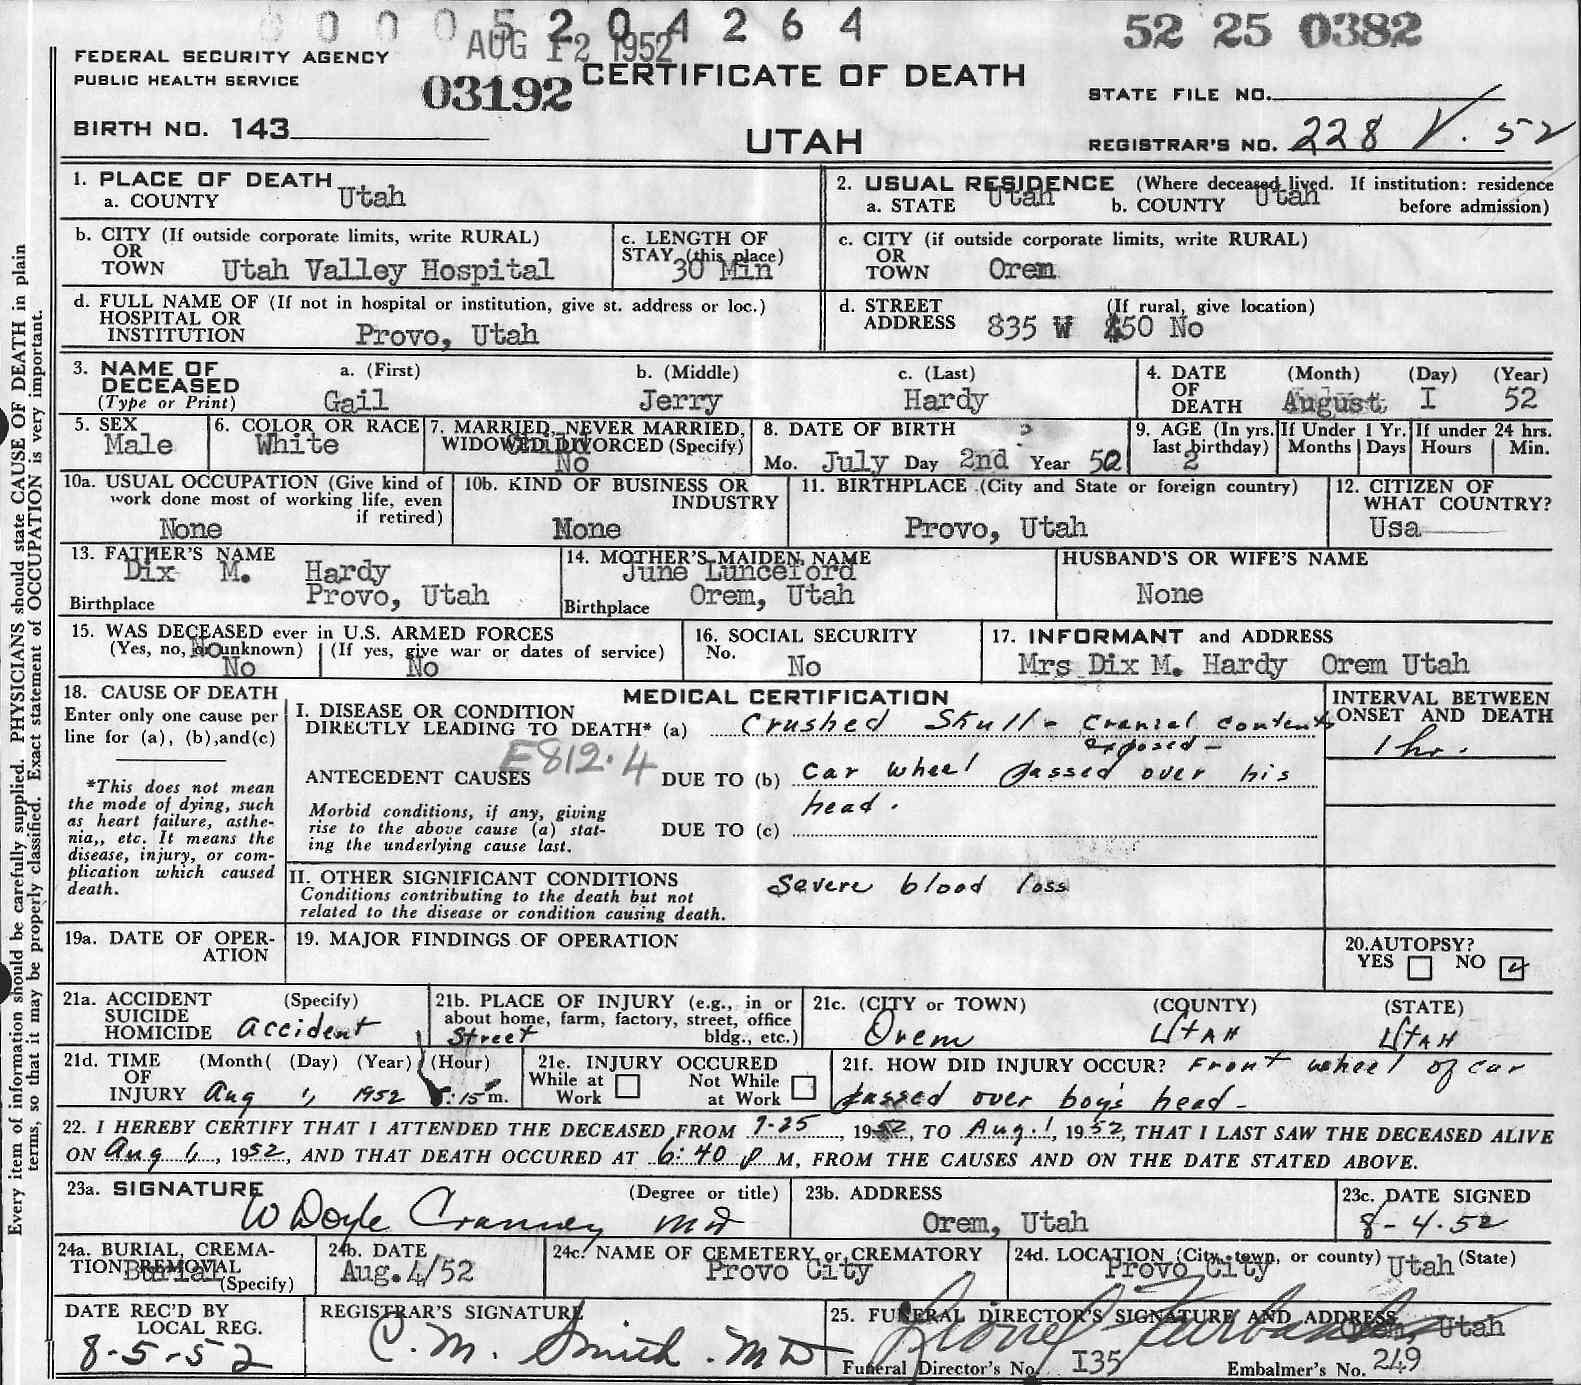 0 0 0 0 5 2 0 4 2 6 4
AUG 12 1952
52 25 0382
FEDERAL SECURITY AGENCY
PUBLIC HEALTH SERVICE
03192
CERTIFICATE OF DEATH
STATE FILE NO.
BIRTH NO. 143
UTAH
REGISTRAR'S NO. 228 V. 52
1. PLACE OF DEATH
a. COUNTY Utah
2. USUAL RESIDENCE (Where deceased lived. If institution: residence
a. STATE Utah b. COUNTY Utah before admission)
b. CITY (If outside corporate limits, write RURAL)
OR
TOWN Utah Valley Hospital
c. LENGTH OF
STAY (this place)
30 Min
c. CITY (if outside corporate limits, write RURAL)
OR
TOWN Orem
d. FULL NAME OF (If not in hospital or institution, give st. address or loc.)
HOSPITAL OR
INSTITUTION Provo, Utah
d. STREET (If rural, give location)
ADDRESS 835 W 50 No
3. NAME OF a. (First) b. (Middle) c. (Last)
DECEASED
(Type or Print) Gail Jerry Hardy
4. DATE (Month) (Day) (Year)
OF
DEATH August I 52
5. SEX
Male
6. COLOR OR RACE
White
7. MARRIED, NEVER MARRIED,
WIDOWED, DIVORCED (Specify)
Child
No
8. DATE OF BIRTH
Mo. July Day 2nd Year 50
9. AGE (In yrs.
last birthday)
2
If Under 1 Yr.
Months Days
If under 24 hrs.
Hours Min.
10a. USUAL OCCUPATION (Give kind of
work done most of working life, even
if retired)
None
10b. KIND OF BUSINESS OR
INDUSTRY
None
11. BIRTHPLACE (City and State or foreign country)
Provo, Utah
12. CITIZEN OF
WHAT COUNTRY?
Usa
13. FATHER'S NAME
Dix M. Hardy
Birthplace Provo, Utah
14. MOTHER'S MAIDEN NAME
June Lunceford
Birthplace Orem, Utah
HUSBAND'S OR WIFE'S NAME
None
15. WAS DECEASED ever in U.S. ARMED FORCES
(Yes, no, or unknown) (If yes, give war or dates of service)
No
No No
16. SOCIAL SECURITY
No.
No
17. INFORMANT and ADDRESS
Mrs Dix M. Hardy Orem Utah
18. CAUSE OF DEATH
Enter only one cause per
line for (a), (b),and(c)
*This does not mean
the mode of dying, such
as heart failure, asthe-
nia,, etc. It means the
disease, injury, or com-
plication which caused
death.
MEDICAL CERTIFICATION
I. DISEASE OR CONDITION
DIRECTLY LEADING TO DEATH* (a) Crushed Skull - Cranial contents
exposed -
E812.4
ANTECEDENT CAUSES DUE TO (b) Car wheel passed over his
head.
Morbid conditions, if any, giving
rise to the above cause (a) stat-
ing the underlying cause last.
DUE TO (c)
INTERVAL BETWEEN
ONSET AND DEATH
1 hr.
II. OTHER SIGNIFICANT CONDITIONS
Conditions contributing to the death but not
related to the disease or condition causing death.
Severe blood loss
19a. DATE OF OPER-
ATION
19. MAJOR FINDINGS OF OPERATION
20.AUTOPSY?
YES NO
21a. ACCIDENT (Specify)
SUICIDE
HOMICIDE Accident
21b. PLACE OF INJURY (e.g., in or
about home, farm, factory, street, office
bldg., etc.)
Street
21c. (CITY or TOWN) (COUNTY) (STATE)
Orem UTAH UTAH
21d. TIME (Month( (Day) (Year) (Hour)
OF
INJURY Aug 1, 1952 6:15 P m.
21e. INJURY OCCURED
While at Work
Not While at Work
21f. HOW DID INJURY OCCUR? Front wheel of car
passed over boy's head -
22. I HEREBY CERTIFY THAT I ATTENDED THE DECEASED FROM 7-25, 1952, TO Aug. 1, 1952, THAT I LAST SAW THE DECEASED ALIVE
ON Aug 1, 1952, AND THAT DEATH OCCURED AT 6:40 P M, FROM THE CAUSES AND ON THE DATE STATED ABOVE.
23a. SIGNATURE (Degree or title)
W Doyle Cranney MD
23b. ADDRESS
Orem, Utah
23c. DATE SIGNED
8-4-52
24a. BURIAL, CREMA-
TION REMOVAL
(Specify)
Burial
24b. DATE
Aug. 4/52
24c. NAME OF CEMETERY or CREMATORY
Provo City
24d. LOCATION (City, town, or county) (State)
Provo City Utah
DATE REC'D BY
LOCAL REG.
8-5-52
REGISTRAR'S SIGNATURE
C. M. Smith. MD
25. FUNERAL DIRECTOR'S SIGNATURE AND ADDRESS
Orem, Utah
Funeral Director's No. I35 Embalmer's No. 249
Every item of information should be carefully supplied. PHYSICIANS should state CAUSE OF DEATH in plain
terms, so that it may be properly classified. Exact statement of OCCUPATION is very important.